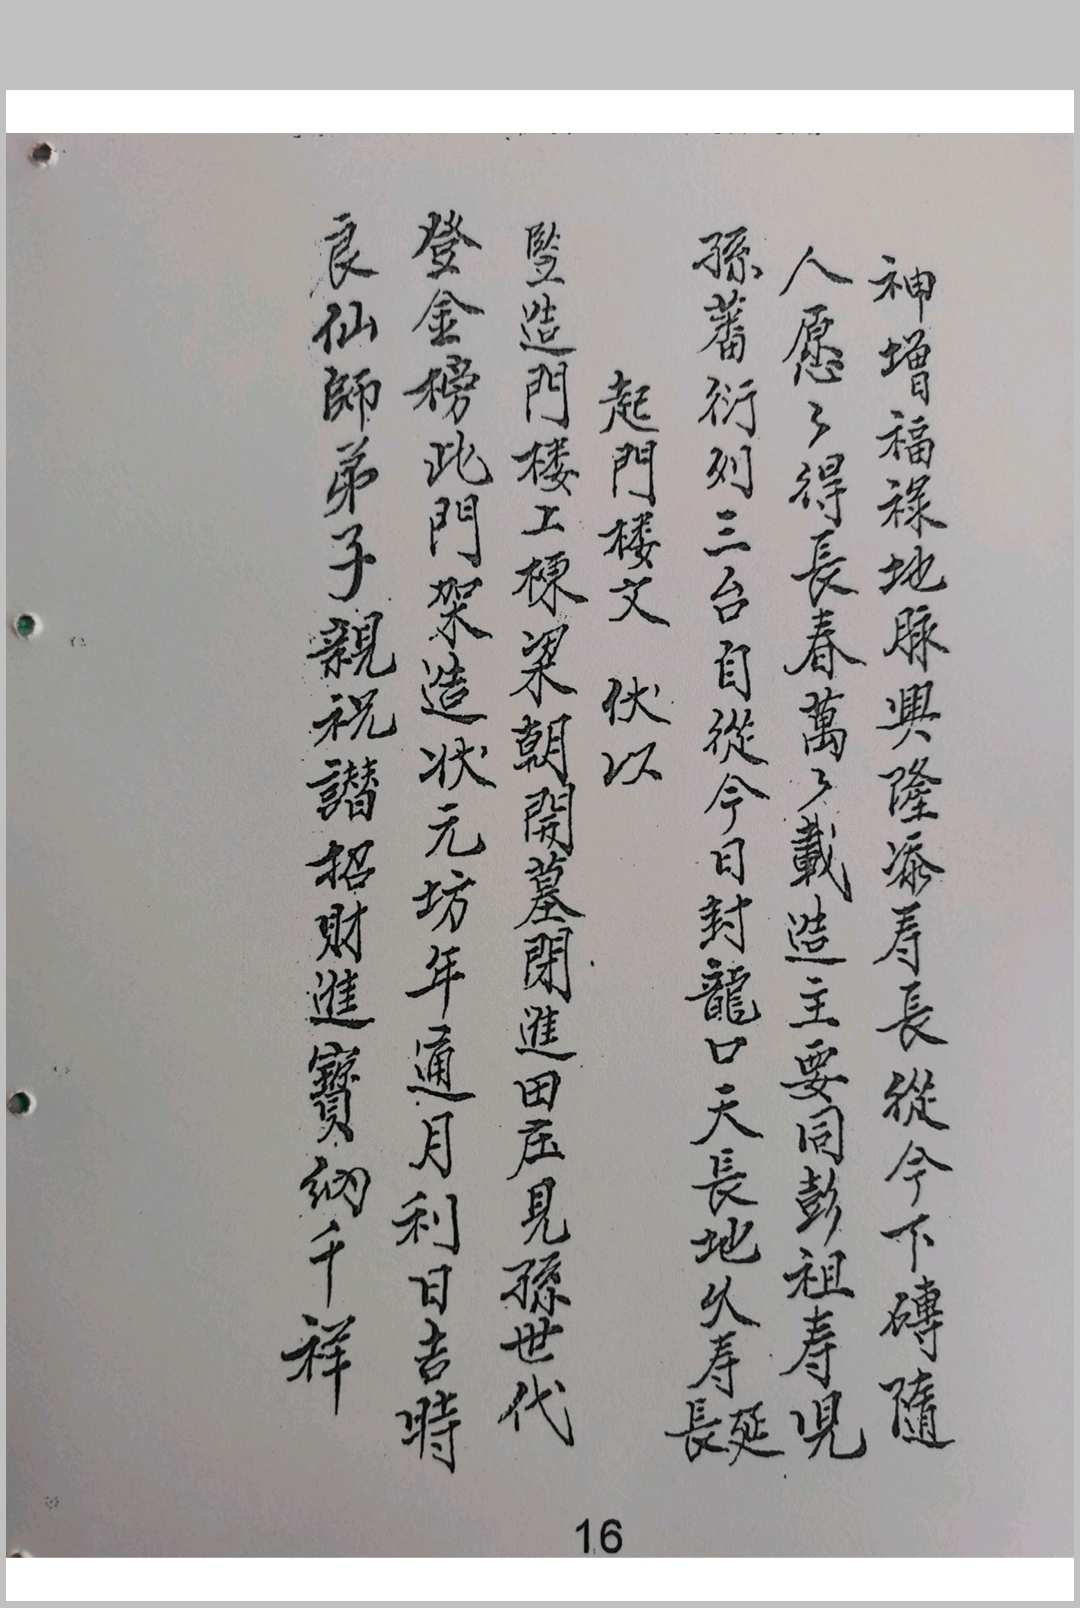 神增福祿地脉興隆添寿長從今下磚隨
人愿〻得長春萬〻載造主要同彭祖寿児
孫蕃衍列三台自從今日封龍口天長地久寿長延
起門楼文 伏以
竪造門楼上棟梁朝開墓閉進田庄見孫世代
登金榜此門架造状元坊年通月利日吉時
良仙師弟子親祝讃招財進寶納千祥
16